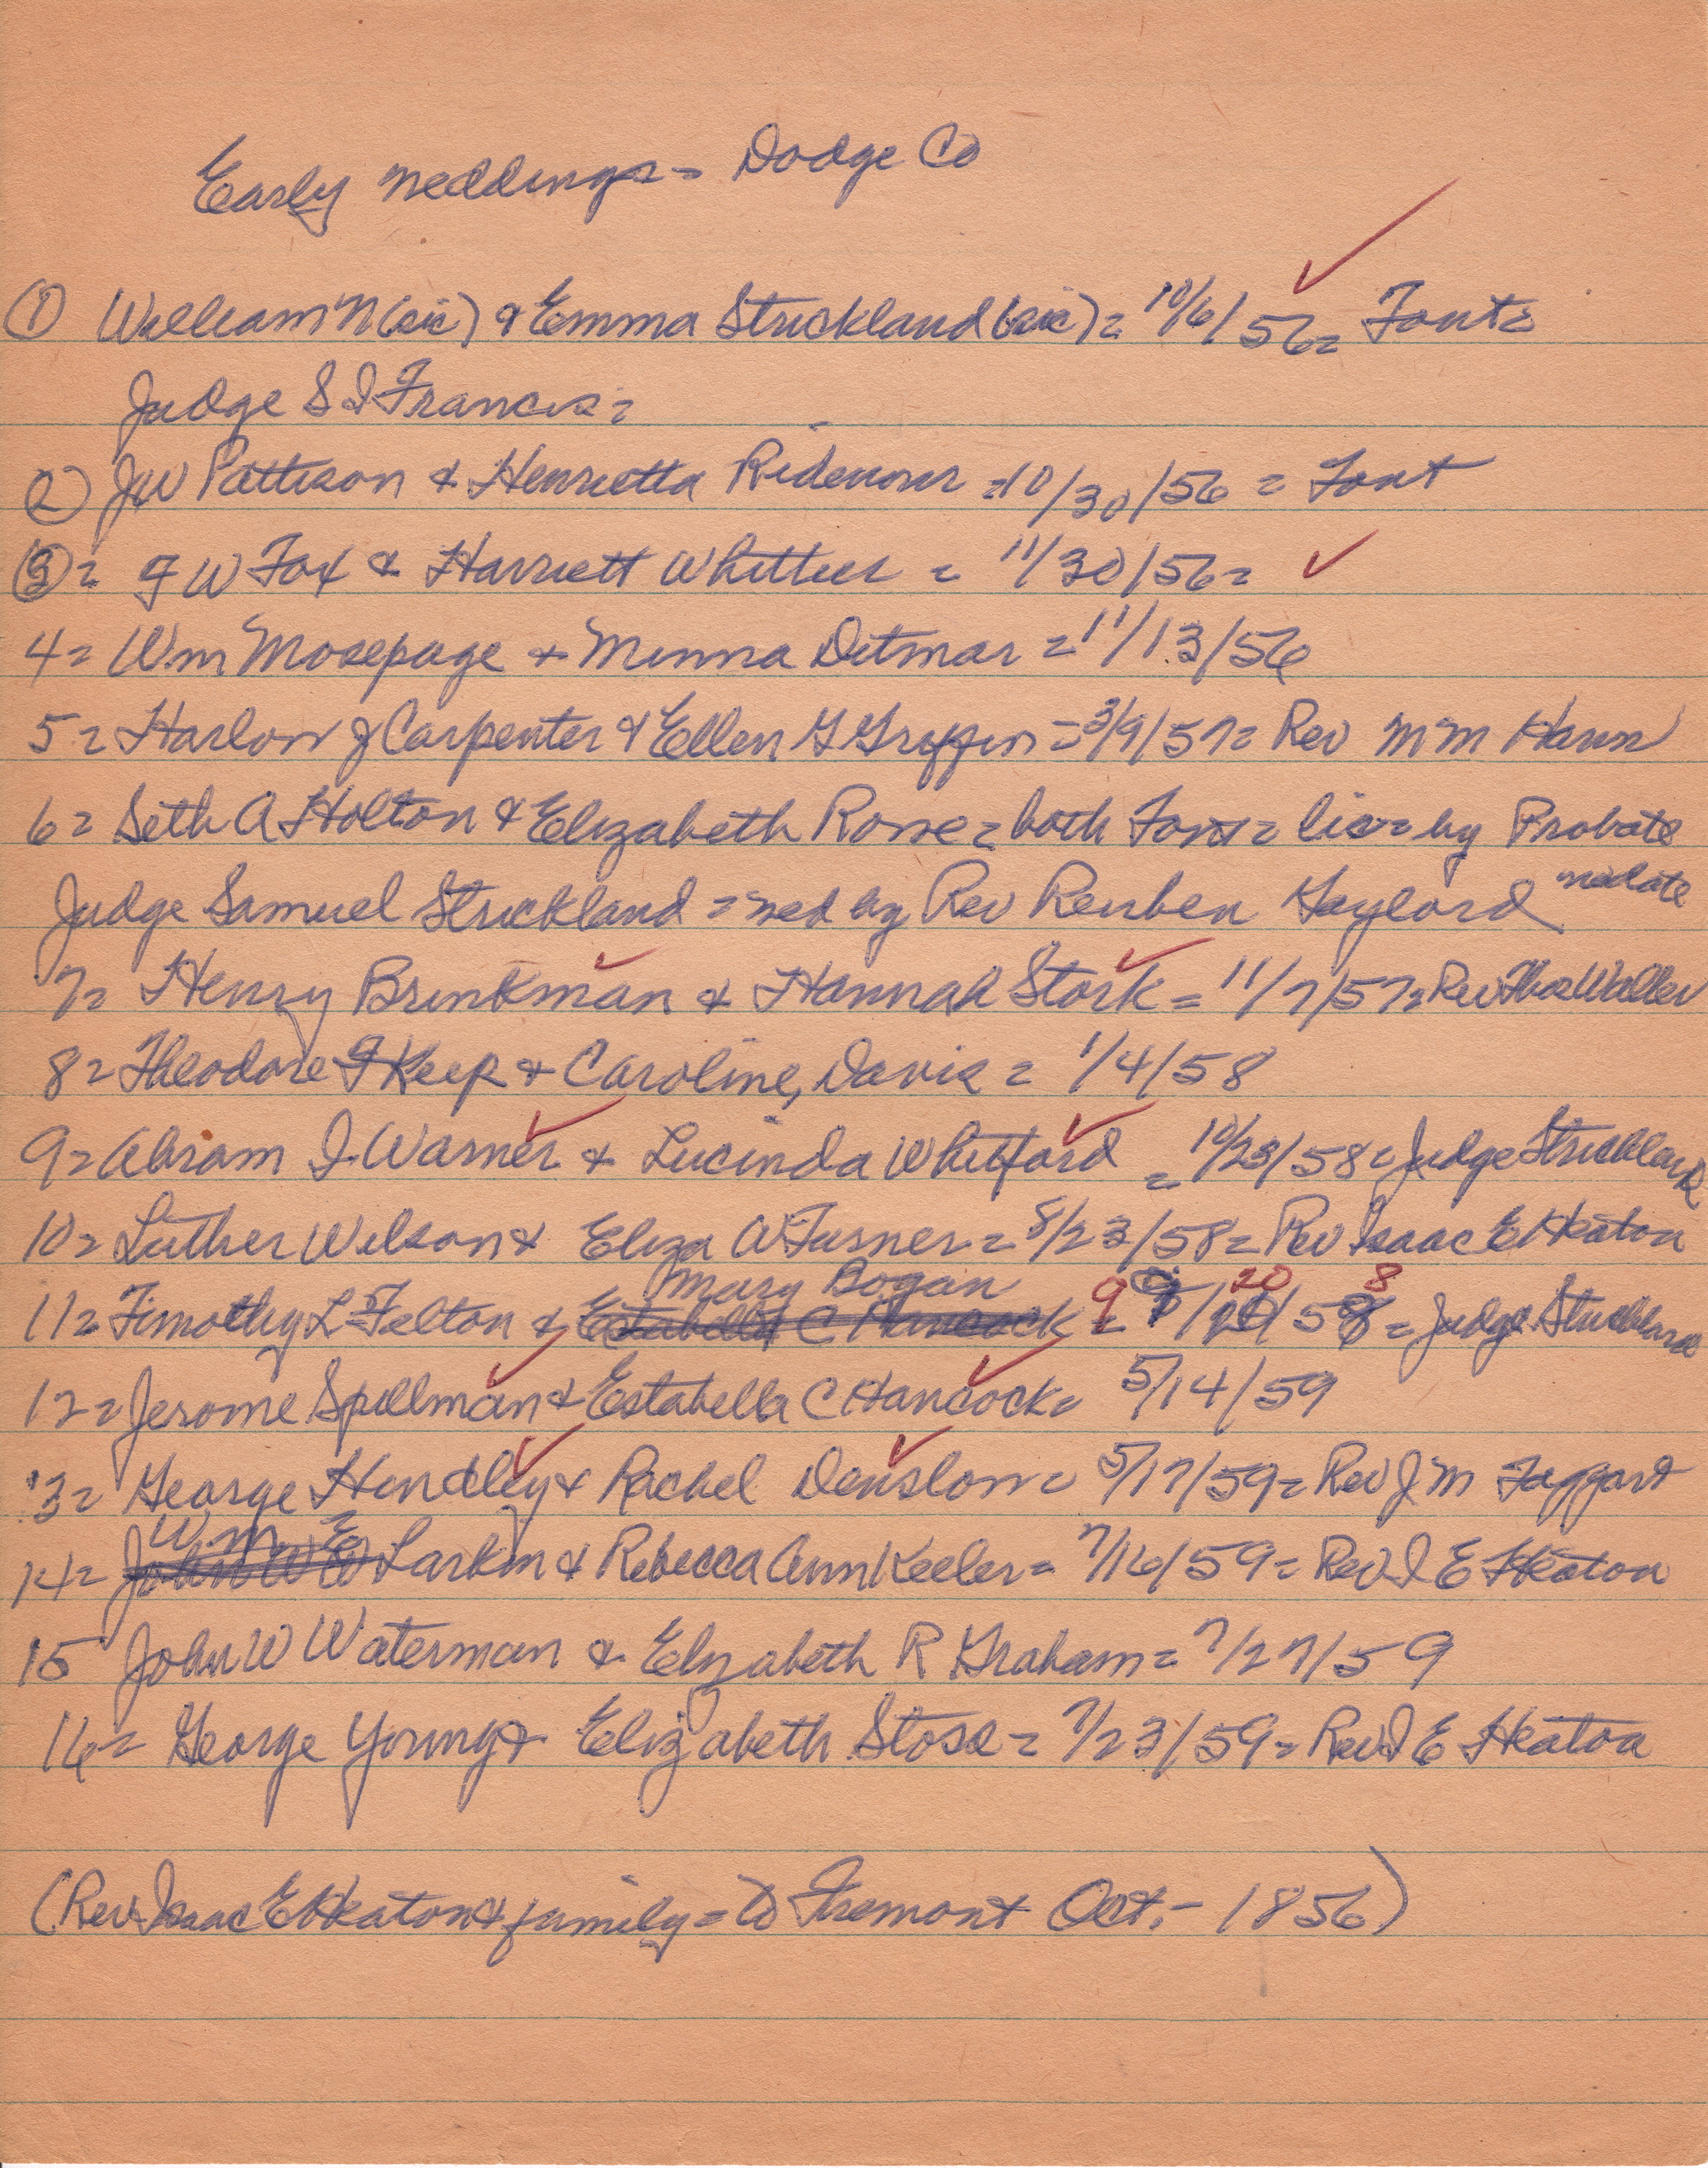 Early Weddings = Dodge Co
① William N (sic) & Emma Strickland (sic) = 10/6/56 = Font =
Judge S I Francis =
② JW Pattison & Henrietta Ridenour = 10/30/56 = Font
③ = F W Fox & Harriett Whittier = 11/30/56 =
4 = Wm Mosepage & Minna Ditmar = 11/13/56
5 = Harlow J Carpenter & Ellen G Griffin = 3/9/57 = Rev M M Haun
6 = Seth A Holton & Elizabeth Rosse = both Font = lic = by Probate
Judge Samuel Strickland = wed by Rev Reuben Gaylord no date
7 = Henry Brinkman & Hannah Stork = 11/7/57 = Rev Thos Waller
8 = Theodore F Keep & Caroline Davis = 1/4/58
9 = Abram I Warner & Lucinda Whitford = 10/23/58 = Judge Strickland
10 = Luther Wilson & Eliza A Turner = 8/23/58 = Rev Isaac E Heaton
Mary Bogan 9 20 8
11 = Timothy L Felton & Estabella C Hancock = 9/20/58 = Judge Strickland
12 = Jerome Spillman & Estabella C Hancock = 5/14/59
13 = George Hindley & Rachel Denslow = 5/17/59 = Rev J M Taggart
Wm E
14 = John W W Larkin & Rebecca Ann Keeler = 7/16/59 = Rev I E Heaton
15 John W Waterman & Elizabeth R Graham = 7/27/59
16 = George Young & Elizabeth Stose = 7/23/59 = Rev I E Heaton
(Rev Isaac E Heaton & family = to Fremont Oct. - 1856)